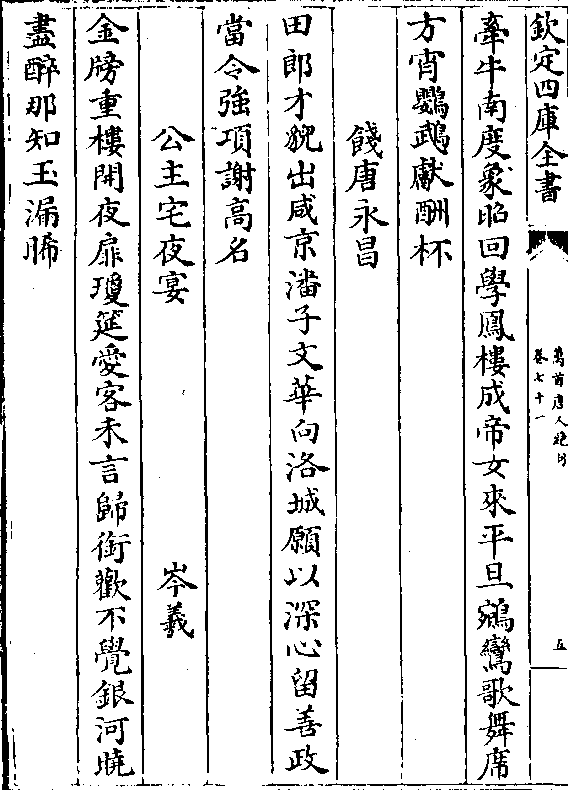 欽定四庫全書
萬首唐人絶句
卷七十一
五
牽牛南度象昭回學鳳樓成帝女來平旦鵷鸞歌舞席
方宵鸚鵡獻酬杯
餞唐永昌
田郎才貌出咸京潘子文華向洛城願以深心留善政
當令強項謝高名
公主宅夜宴
岑羲
金牓重樓開夜扉瓊筵愛客未言歸銜歡不覺銀河曉
盡醉那知玉漏晞